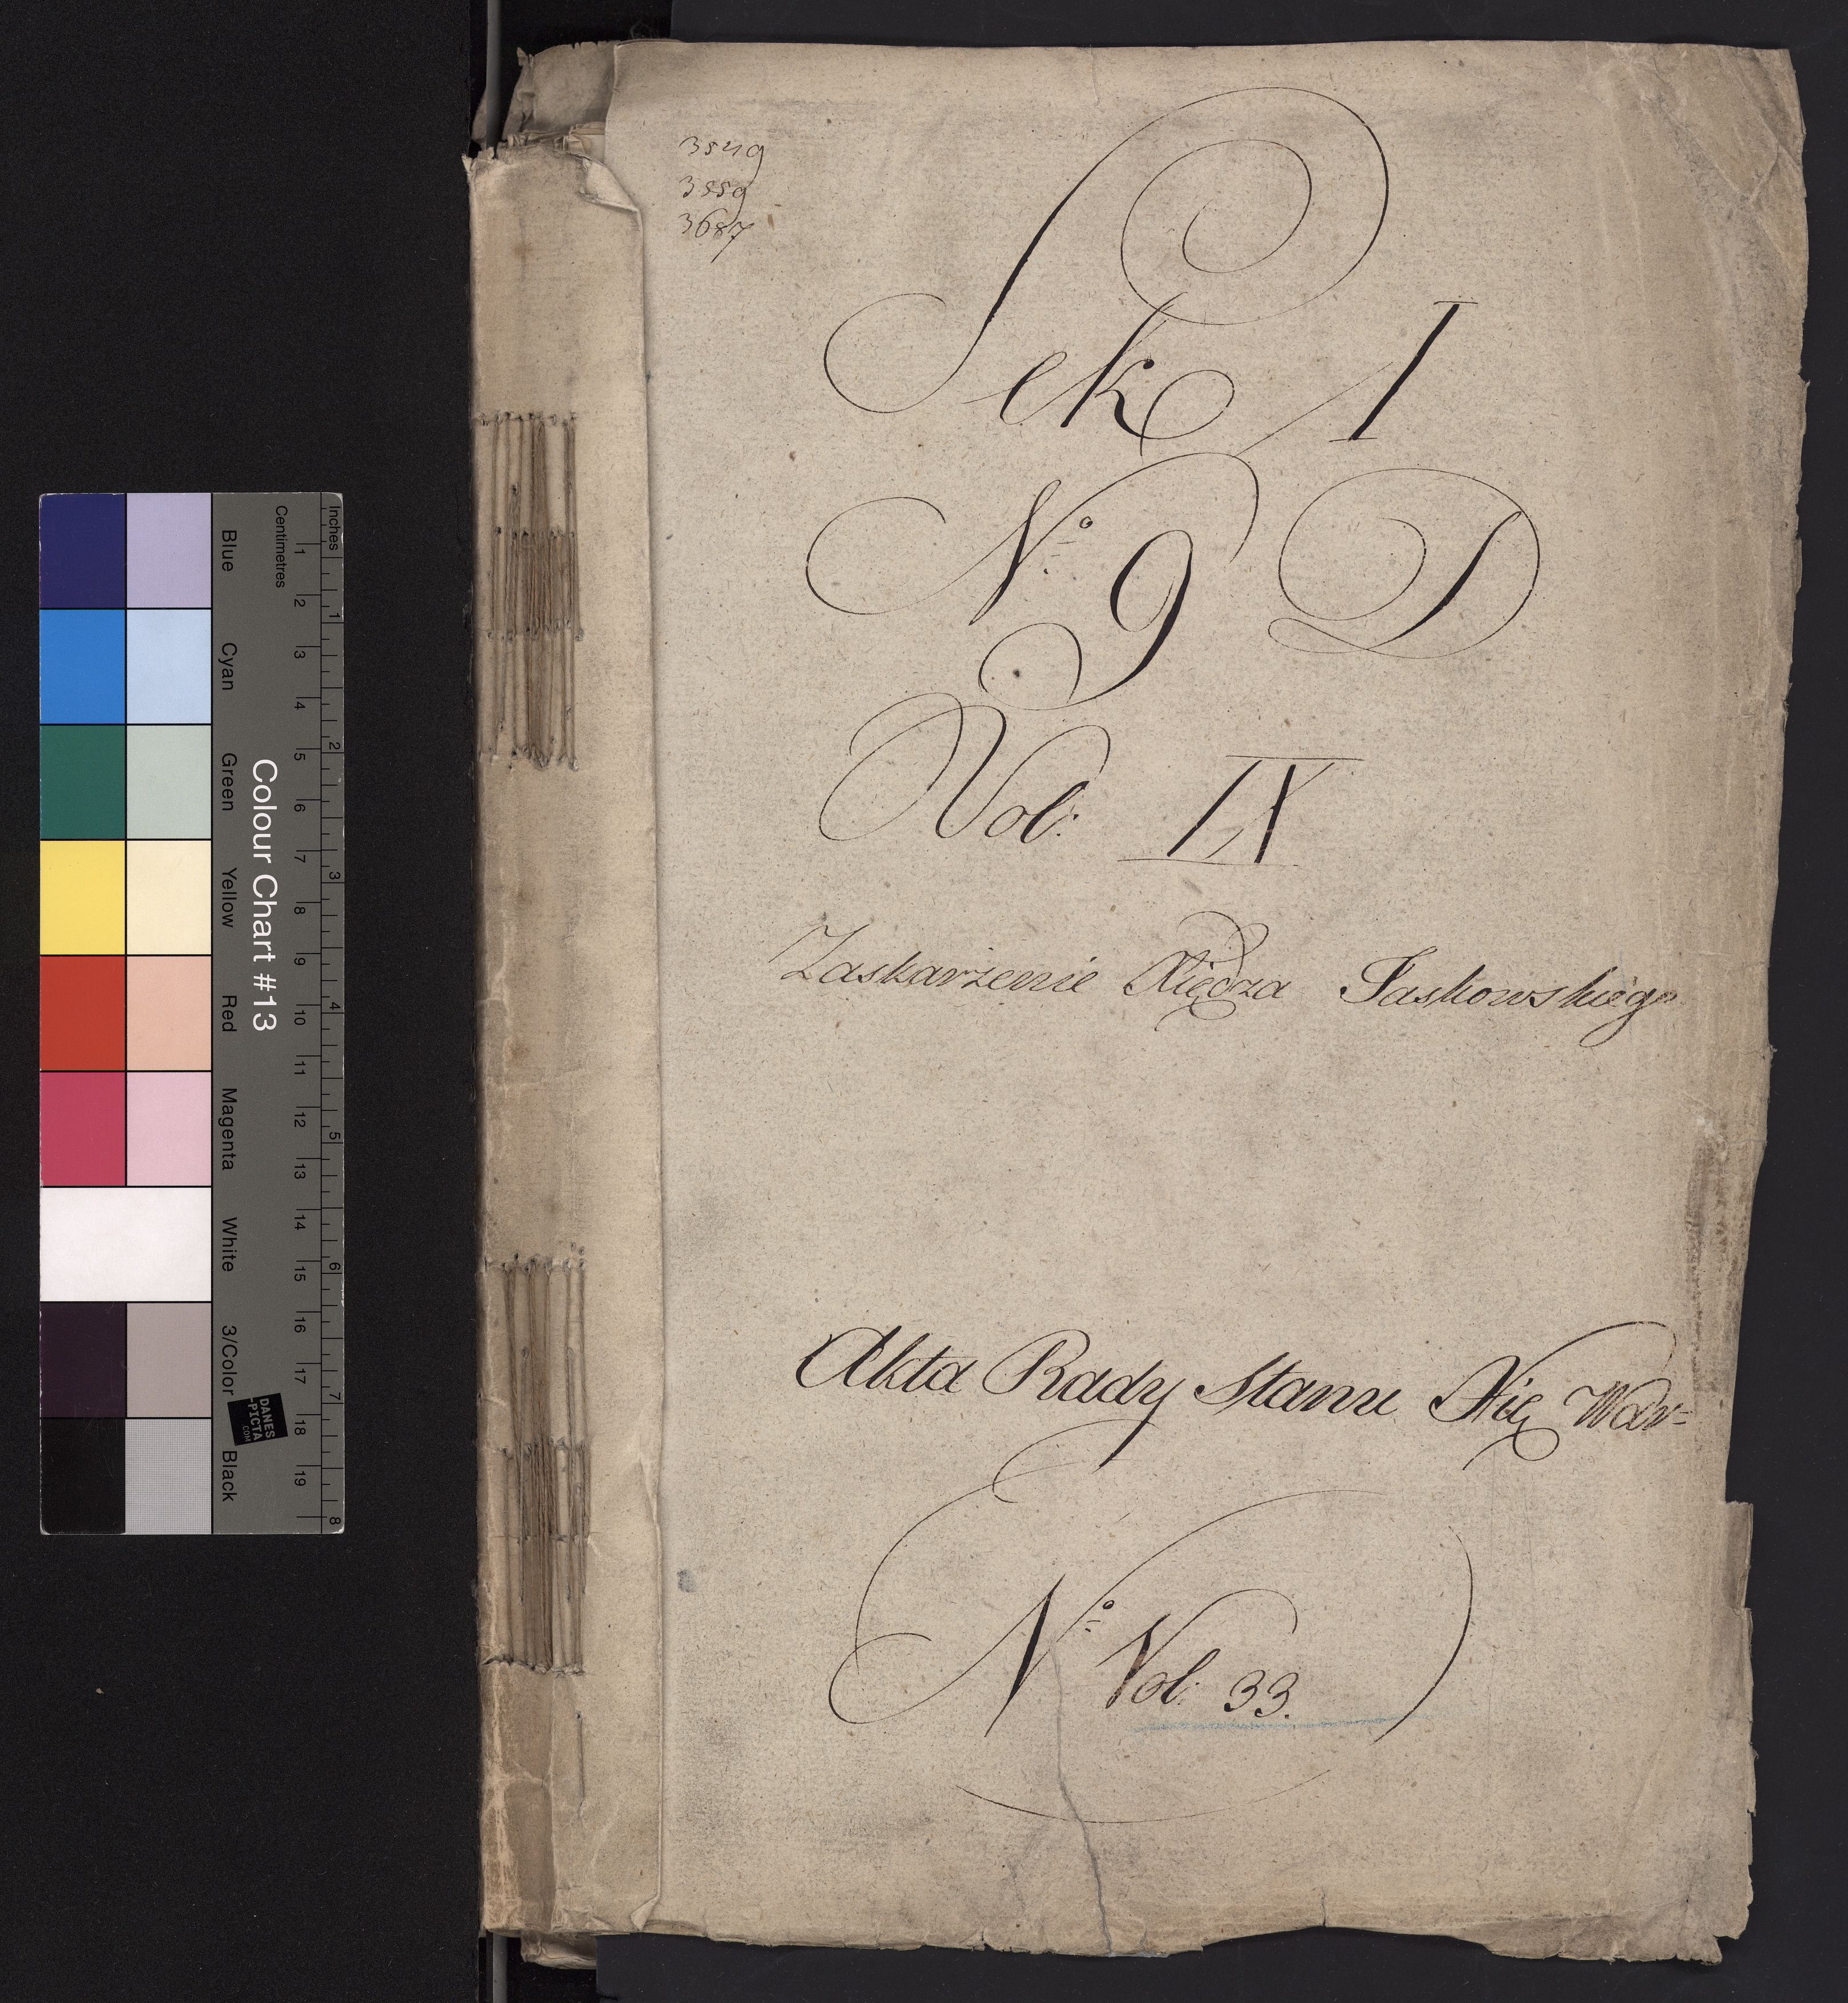 3549
3559
3687
Sek I
No 9 D
Vol: IX
Zaskarżenie Xiędza Jaskowskiego
Akta Rady Stanu Xię War=
No Vol: 33.
Inches
Centimetres
1 2 3 4 5 6 7 8 9 10 11 12 13 14 15 16 17 18 19
1 2 3 4 5 6 7 8
Colour Chart #13
Blue
Cyan
Green
Yellow
Red
Magenta
White
3/Color
Black
DANES
-PICTA
.COM